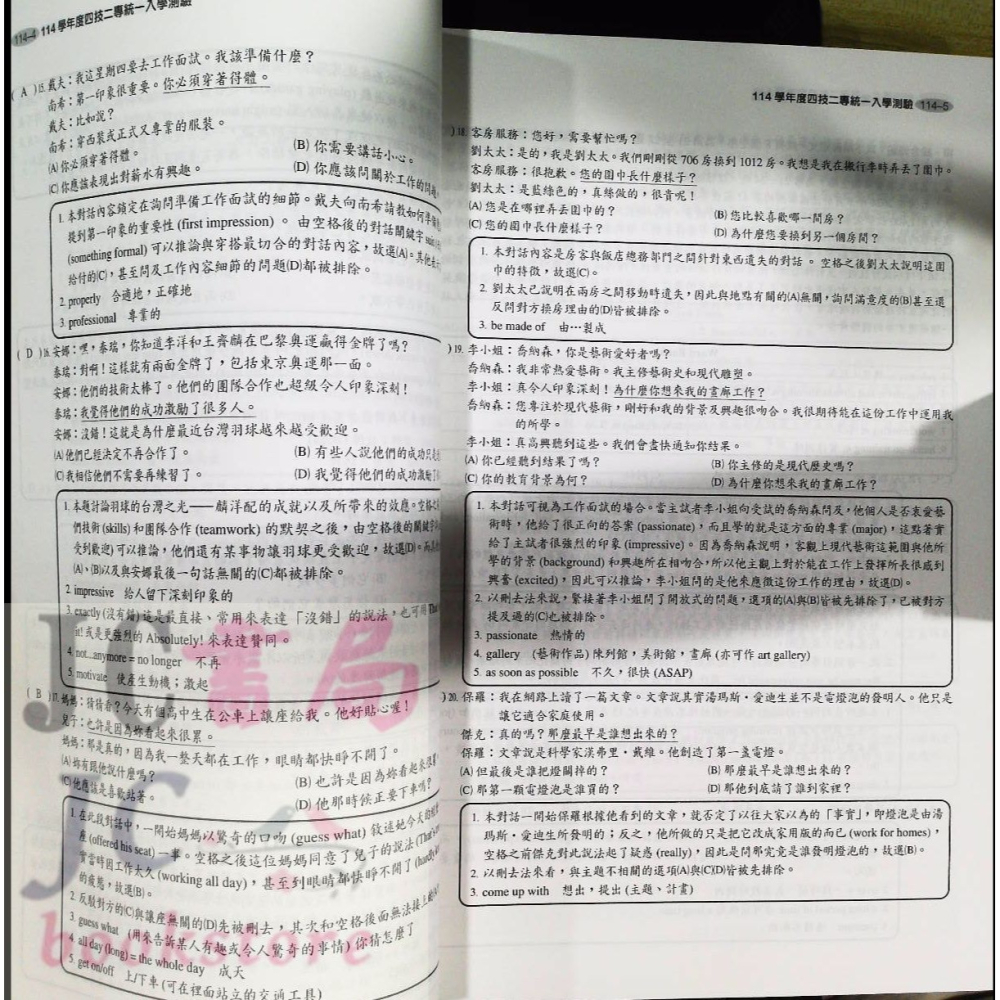 114-4 114 學年度四技二專統一入學測驗
( A ) 15. 戴夫：我這星期四要去工作面試。我該準備什麼？
南希：第一印象很重要。你必須穿著得體。
戴夫：比如說？
南希：穿西裝或正式又專業的服裝。
(A) 你必須穿著得體。 (B) 你需要講話小心。
(C) 你應該表現出對薪水有興趣。 (D) 你應該問關於工作的問題
1. 本對話內容鎖定在詢問準備工作面試的細節。戴夫向南希請教如何準備
提到第一印象的重要性 (first impression)。由空格後的對話關鍵字 suit
(something formal) 可以推論與穿搭最切合的對話內容，故選(A)。其他
給付的(C)，甚至問及工作內容細節的問題(D)都被排除。
2. properly 合適地，正確地
3. professional 專業的
( D ) 16. 安娜：嘿，泰瑞，你知道李洋和王齊麟在巴黎奧運贏得金牌了嗎？
泰瑞：對啊！這樣就有兩面金牌了，包括東京奧運那一面。
安娜：他們的技術太棒了。他們的團隊合作也超級令人印象深刻！
泰瑞：我覺得他們的成功激勵了很多人。
安娜：沒錯！這就是為什麼最近台灣羽球越來越受歡迎。
(A) 他們已經決定不再合作了。 (B) 有些人說他們的成功只
(C) 我相信他們不需要再練習了。 (D) 我覺得他們的成功激勵
1. 本題討論羽球的台灣之光——麟洋配的成就以及所帶來的效應。空格
們技術 (skills) 和團隊合作 (teamwork) 的默契之後，由空格後的關鍵字
受到歡迎) 可以推論，他們還有某事物讓羽球更受歡迎，故選(D)。而
(A)、(B)以及與安娜最後一句話無關的(C)都被排除。
2. impressive 給人留下深刻印象的
3. exactly (沒有錯) 這是最直接、常用來表達「沒錯」的說法。也可用 That's
it! 或是更強烈的 Absolutely! 來表達贊同。
4. not...anymore = no longer 不再
5. motivate 使產生動機；激起
( B ) 17. 媽媽：猜猜看？今天有個高中生在公車上讓座給我。他好貼心喔！
兒子：也許是因為妳看起來很累。
媽媽：那是真的，因為我一整天都在工作，眼睛都快睜不開了。
(A) 妳有跟他說什麼嗎？ (B) 也許是因為妳看起來很累
(C) 他應該是喜歡站著。 (D) 他那時候正要下車嗎？
1. 在此段對話中，一開始媽媽以驚奇的口吻 (guess what) 敘述她今天
座 (offered his seat) 一事。空格之後這位媽媽同意了兒子的說法 (That's
實當時因工作太久 (working all day)，甚至到眼睛都快睜不開了 (hardly
的疲態，故選(B)。
2. 反駁對方的(C)與讓座無關的(D)先被刪去，其次和空格後面無法接上
3. guess what (用來告訴某人有趣或令人驚奇的事情) 你猜怎麼了
4. all day (long) = the whole day 成天
5. get on/off 上/下車 (可在裡面站立的交通工具)
JC書局
JC
bookstore
114 學年度四技二專統一入學測驗 114-5
) 18. 客房服務：您好，需要幫忙嗎？
劉太太：是的，我是劉太太。我們剛剛從 706 房換到 1012 房。我想是我在搬行李時弄丟了圍巾。
客房服務：很抱歉。您的圍巾長什麼樣子？
劉太太：是藍綠色的，真絲做的，很貴呢！
(A) 您是在哪裡弄丟圍巾的？ (B) 您比較喜歡哪一間房？
(C) 您的圍巾長什麼樣子？ (D) 為什麼您要換到另一個房間？
1. 本對話內容是房客與飯店總務部門之間針對東西遺失的對話。空格之後劉太太說明這圍
巾的特徵，故選(C)。
2. 劉太太已說明在兩房之間移動時遺失，因此與地點有關的(A)無關，詢問滿意度的(B)甚至還
反問對方換房理由的(D)皆被排除。
3. be made of 由…製成
) 19. 李小姐：喬納森，你是藝術愛好者嗎？
喬納森：我非常熱愛藝術。我主修藝術史和現代雕塑。
李小姐：真令人印象深刻！為什麼你想來我的畫廊工作？
喬納森：您專注於現代藝術，剛好和我的背景及興趣很吻合。我很期待能在這份工作中運用我
的所學。
李小姐：真高興聽到這些。我們會盡快通知你結果。
(A) 你已經聽到結果了嗎？ (B) 你主修的是現代歷史嗎？
(C) 你的教育背景為何？ (D) 為什麼你想來我的畫廊工作？
1. 本對話可視為工作面試的場合。當主試者李小姐向受試的喬納森問及，他個人是否衷愛藝
術時，他給了很正向的答案 (passionate)，而且學的就是這方面的專業 (major)，這點著實
給了主試者很強烈的印象 (impressive)。因為喬納森說明，客觀上現代藝術這範圍與他所
學的背景 (background) 和興趣所在相吻合，所以他主觀上對於能在工作上發揮所長很感到
興奮 (excited)，因此可以推論，李小姐問的是他來應徵這份工作的理由，故選(D)。
2. 以刪去法來說，緊接著李小姐問了開放式的問題，選項的(A)與(B)皆被先排除了，已被對方
提及過的(C)也被排除。
3. passionate 熱情的
4. gallery (藝術作品) 陳列館，美術館，畫廊 (亦可作 art gallery)
5. as soon as possible 不久，很快 (ASAP)
) 20. 保羅：我在網路上讀了一篇文章。文章說其實湯瑪斯·愛迪生並不是電燈泡的發明人。他只是
讓它適合家庭使用。
傑克：真的嗎？那麼最早是誰想出來的？
保羅：文章說是科學家漢弗里·戴維。他創造了第一盞電燈。
(A) 但最後是誰把燈關掉的？ (B) 那麼最早是誰想出來的？
(C) 那第一顆電燈泡是誰買的？ (D) 那他到底請了誰到家裡？
1. 本對話一開始保羅根據他看到的文章，就否定了以往大家以為的「事實」，即燈泡是由湯
瑪斯·愛迪生所發明的；反之，他所做的只是把它改成家用版的而已 (work for homes)，
空格之前傑克對此說法起了疑惑 (really)，因此是問那究竟是誰發明燈泡的，故選(B)。
2. 以刪去法來看，與主題不相關的選項(A)與(C)(D)皆被先排除。
3. come up with 想出，提出 (主題、計畫)